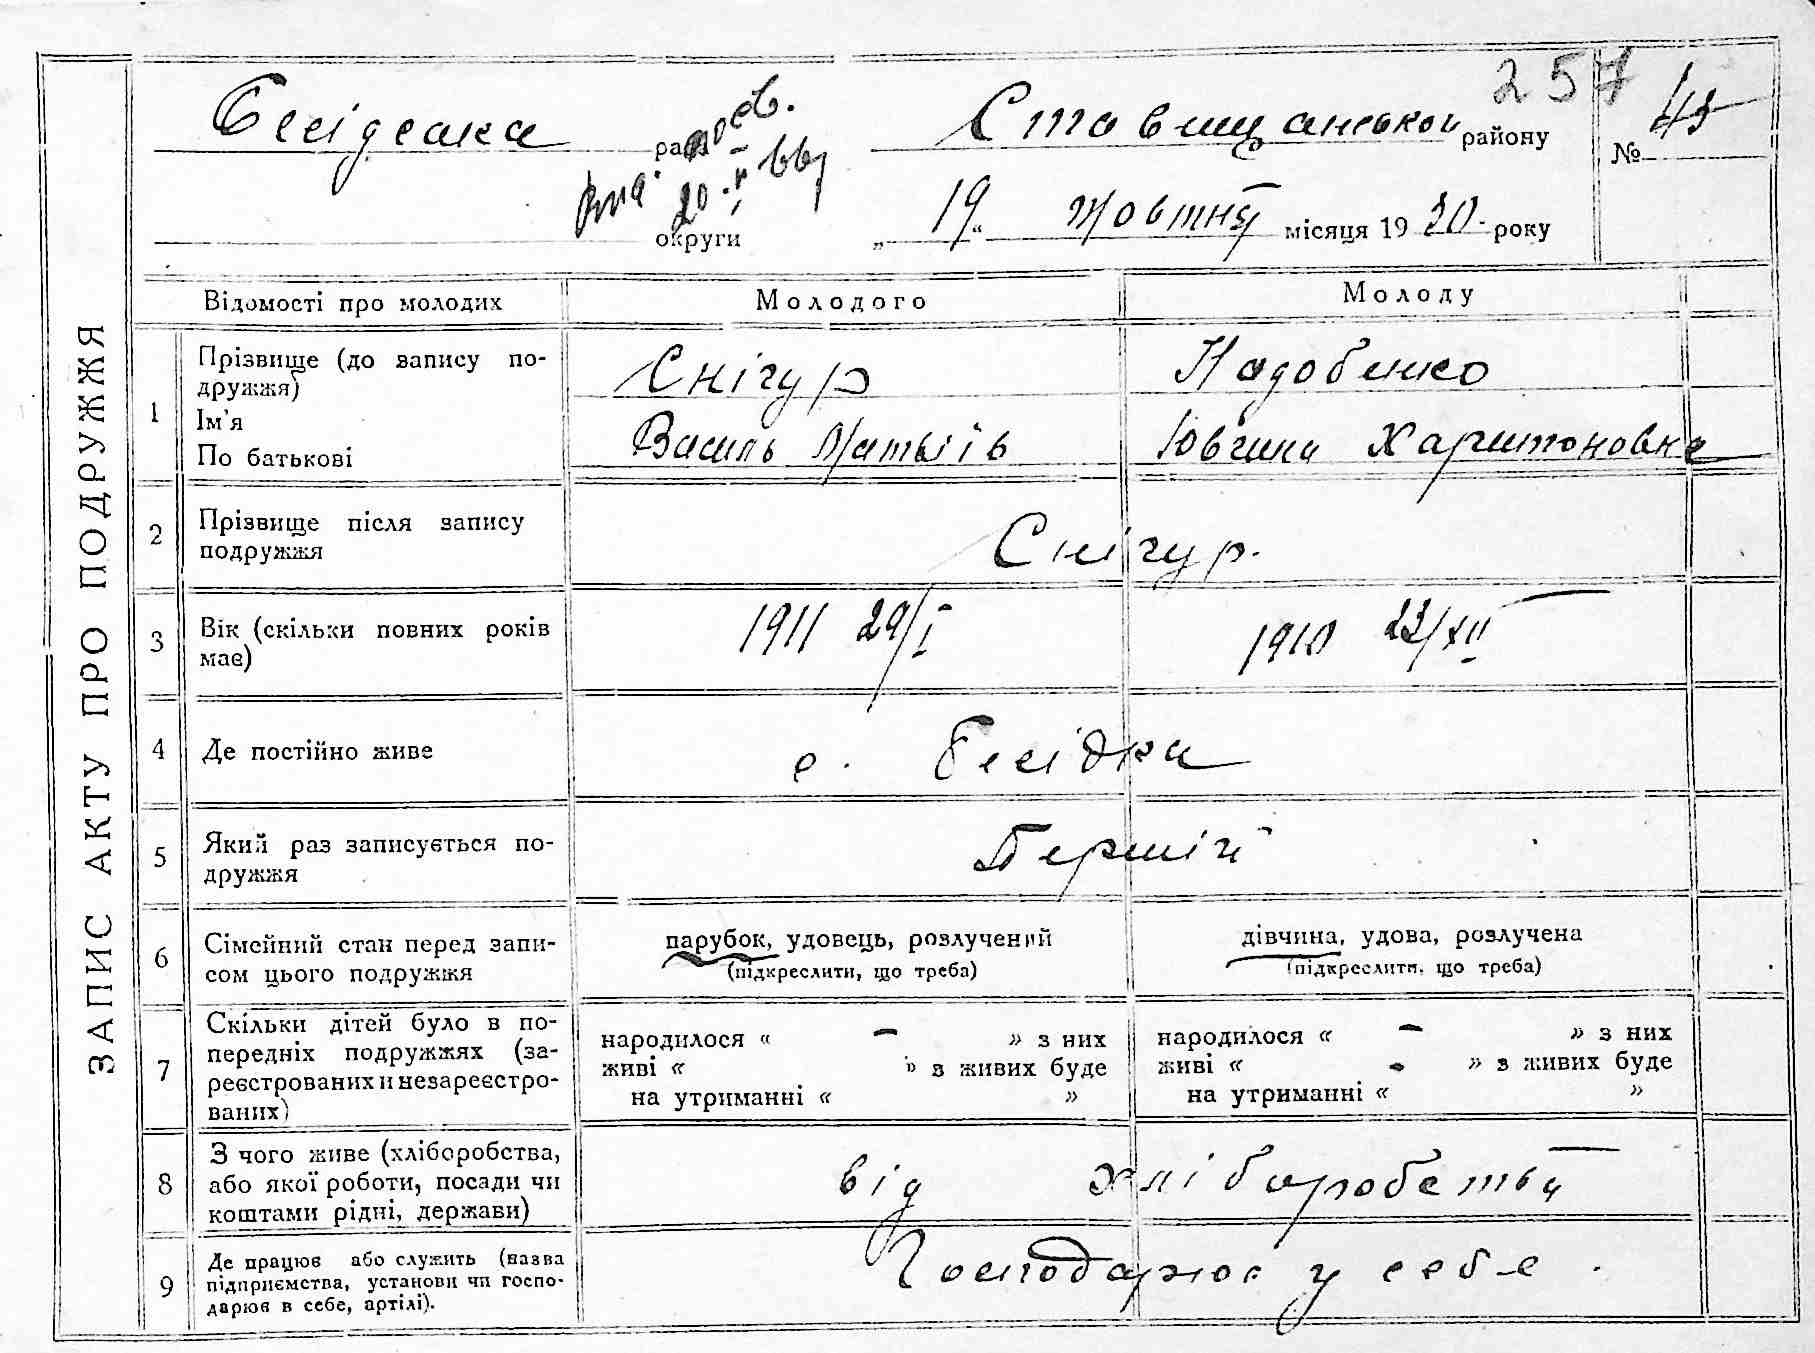 257
Бесідська рада Ставищанського району № 45
округи „19“ жовтня місяця 1930 року
ЗАПИС АКТУ ПРО ПОДРУЖЖЯ
Відомості про молодих Молодого Молоду
1 Прізвище (до запису по-
дружжя) Снігур Надобенко
Ім’я
По батькові Василь Матвіїв Ювгина Харитоновна
2 Прізвище після запису
подружжя Снігур.
3 Вік (скільки повних років
має) 1911 29/I 1910 23/XII
4 Де постійно живе с. Бесідка
5 Який раз записується по-
дружжя Перший
6 Сімейний стан перед запи-
сом цього подружжя
парубок, удовець, розлучений дівчина, удова, розлучена
(підкреслити, що треба) (підкреслити, що треба)
7 Скільки дітей було в по-
передніх подружжях (за-
реєстрованих и незареєстро-
ваних)
народилося « – » з них народилося « – » з них
живі « » з живих буде живі « - » з живих буде
на утриманні « » на утриманні « »
8 З чого живе (хліборобства,
або якої роботи, посади чи
коштами рідні, держави) від хліборобства
9 Де працює або служить (назва
підприємства, установи чи госпо-
дарює в себе, артілі). Господарює у себе.